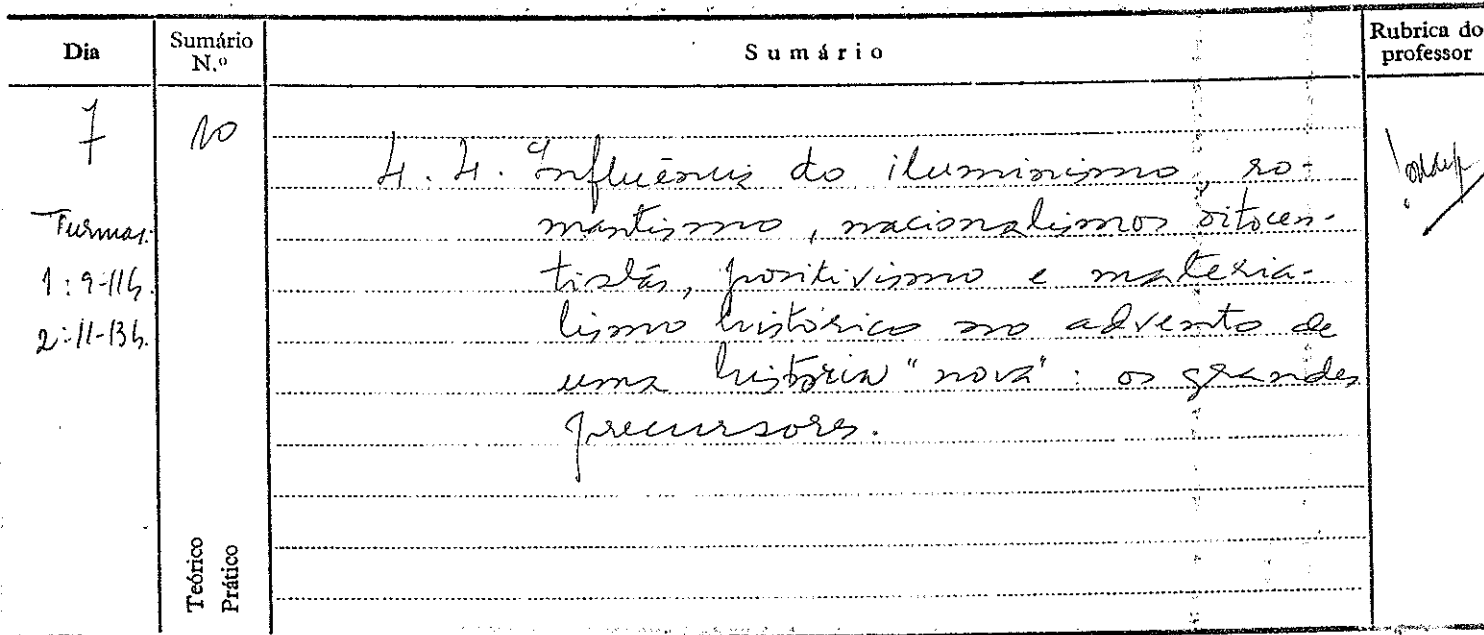 Dia
Sumário N.º
Sumário
Rubrica do professor
7
10
Turmas:
1: 9-11h.
2: 11-13h.
4.4. Influência do iluminismo, ro-
mantismo, nacionalismos oitocen-
tistas, positivismo e materia-
lismo histórico no advento de
uma história "nova": os grandes
precursores.
Teórico
Prático